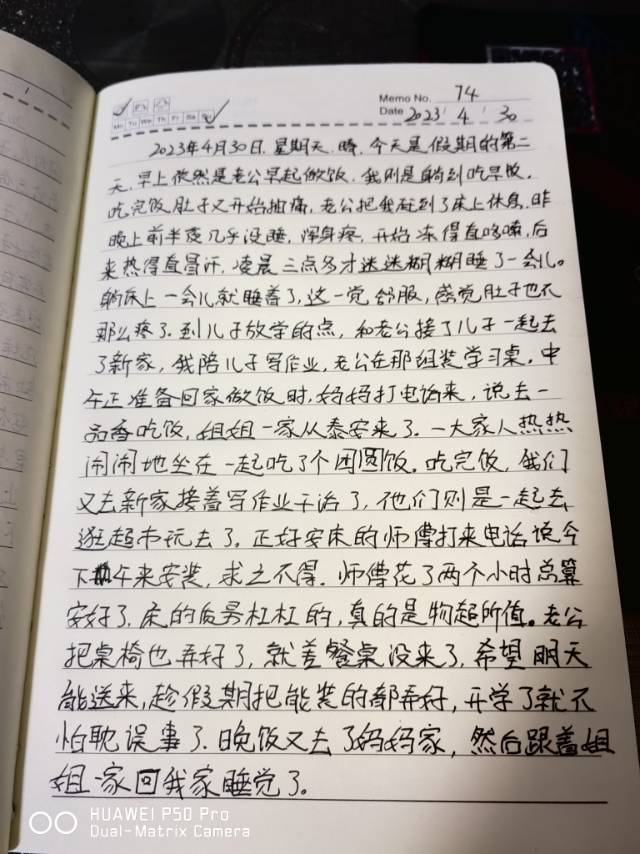 Memo No. 74
Mo Tu We Th Fr Sa Su
Date 2023 / 4 / 30
2023年4月30日. 星期天. 晴. 今天是假期的第二
天. 早上依然是老公早起做饭. 我则是躺到吃早饭.
吃完饭肚子又开始抽痛, 老公把我赶到了床上休息. 昨
晚上前半夜几乎没睡, 浑身疼, 开始冻得直哆嗦, 后
来热得直冒汗, 凌晨三点多才迷迷糊糊睡了一会儿。
躺床上一会儿就睡着了, 这一觉舒服, 感觉肚子也不
那么疼了. 到儿子放学的点, 和老公接了儿子一起去
了新家, 我陪儿子写作业, 老公在那组装学习桌. 中
午正准备回家做饭时, 妈妈打电话来, 说去一
品香吃饭, 姐姐一家从泰安来了. 一大家人热热
闹闹地坐在一起吃了个团圆饭. 吃完饭, 我们
又去新家接着写作业干活了, 他们则是一起去
逛超市玩去了. 正好安床的师傅打来电话说今
下午来安装, 求之不得. 师傅花了两个小时总算
安好了. 床的质量杠杠的, 真的是物超所值。老公
把桌椅也弄好了, 就差餐桌没来了, 希望明天
能送来, 趁假期把能装的都弄好, 开学了就不
怕耽误事了. 晚饭又去了妈妈家, 然后跟着姐
姐一家回我家睡觉了。
HUAWEI P50 Pro
Dual-Matrix Camera